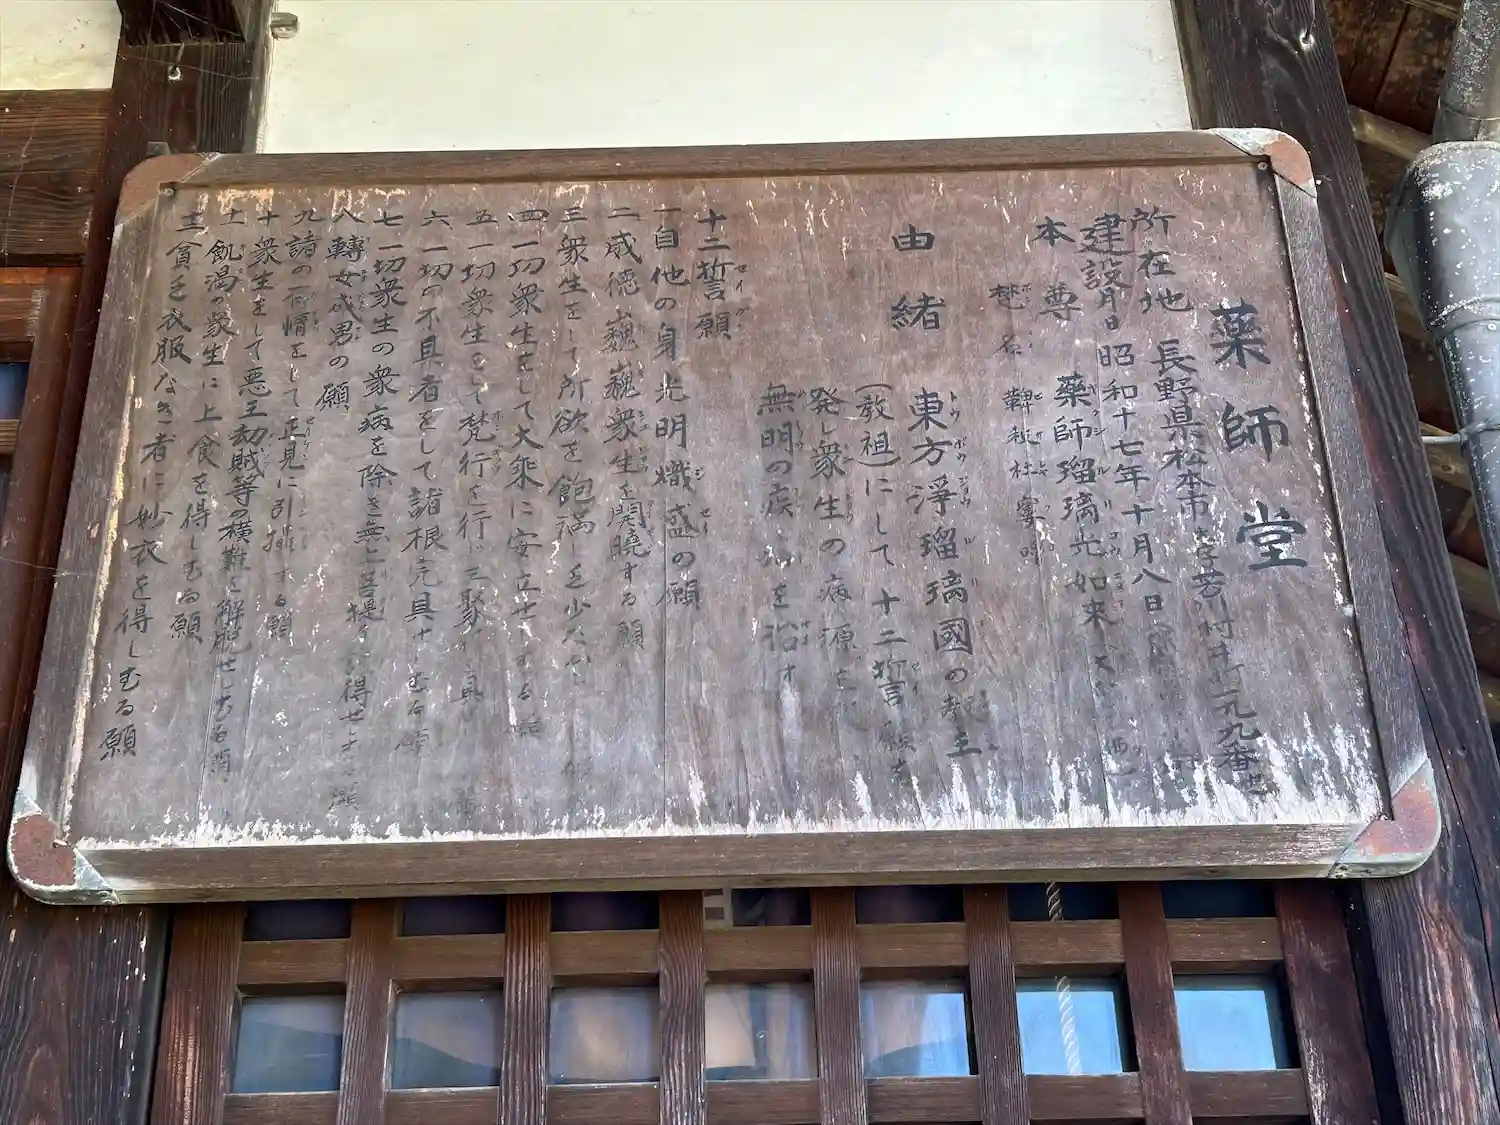 薬師堂
所在地 長野県松本市大字芳川村井町一九九番地
建設月日 昭和十七年十月八日
本尊 薬師瑠璃光如来
梵名 鞞殺社窶嚕
由緒 東方浄瑠璃國の教主
(教祖)にして十二誓願を
発し衆生の病源を
無明の疾 を治す
十二誓願
一 自他の身光明熾盛の願
二 威徳巍巍衆生を開曉する願
三 衆生をして所欲を飽満し乏少な
四 一切衆生をして大乗に安立せしむる
五 一切衆生をして梵行を行じ三聚 具
六 一切の不具者をして諸根完具せしむる願
七 一切衆生の衆病を除き無上菩提を 得せしむる願
八 轉女成男の願
九 諸の有情をして正見に引攝する願
十 衆生をして悪王劫賊等の横難を解脱せしむる願
十一 飢渇の衆生に上食を得しむる願
十二 貧乏衣服なき者に妙衣を得しむる願